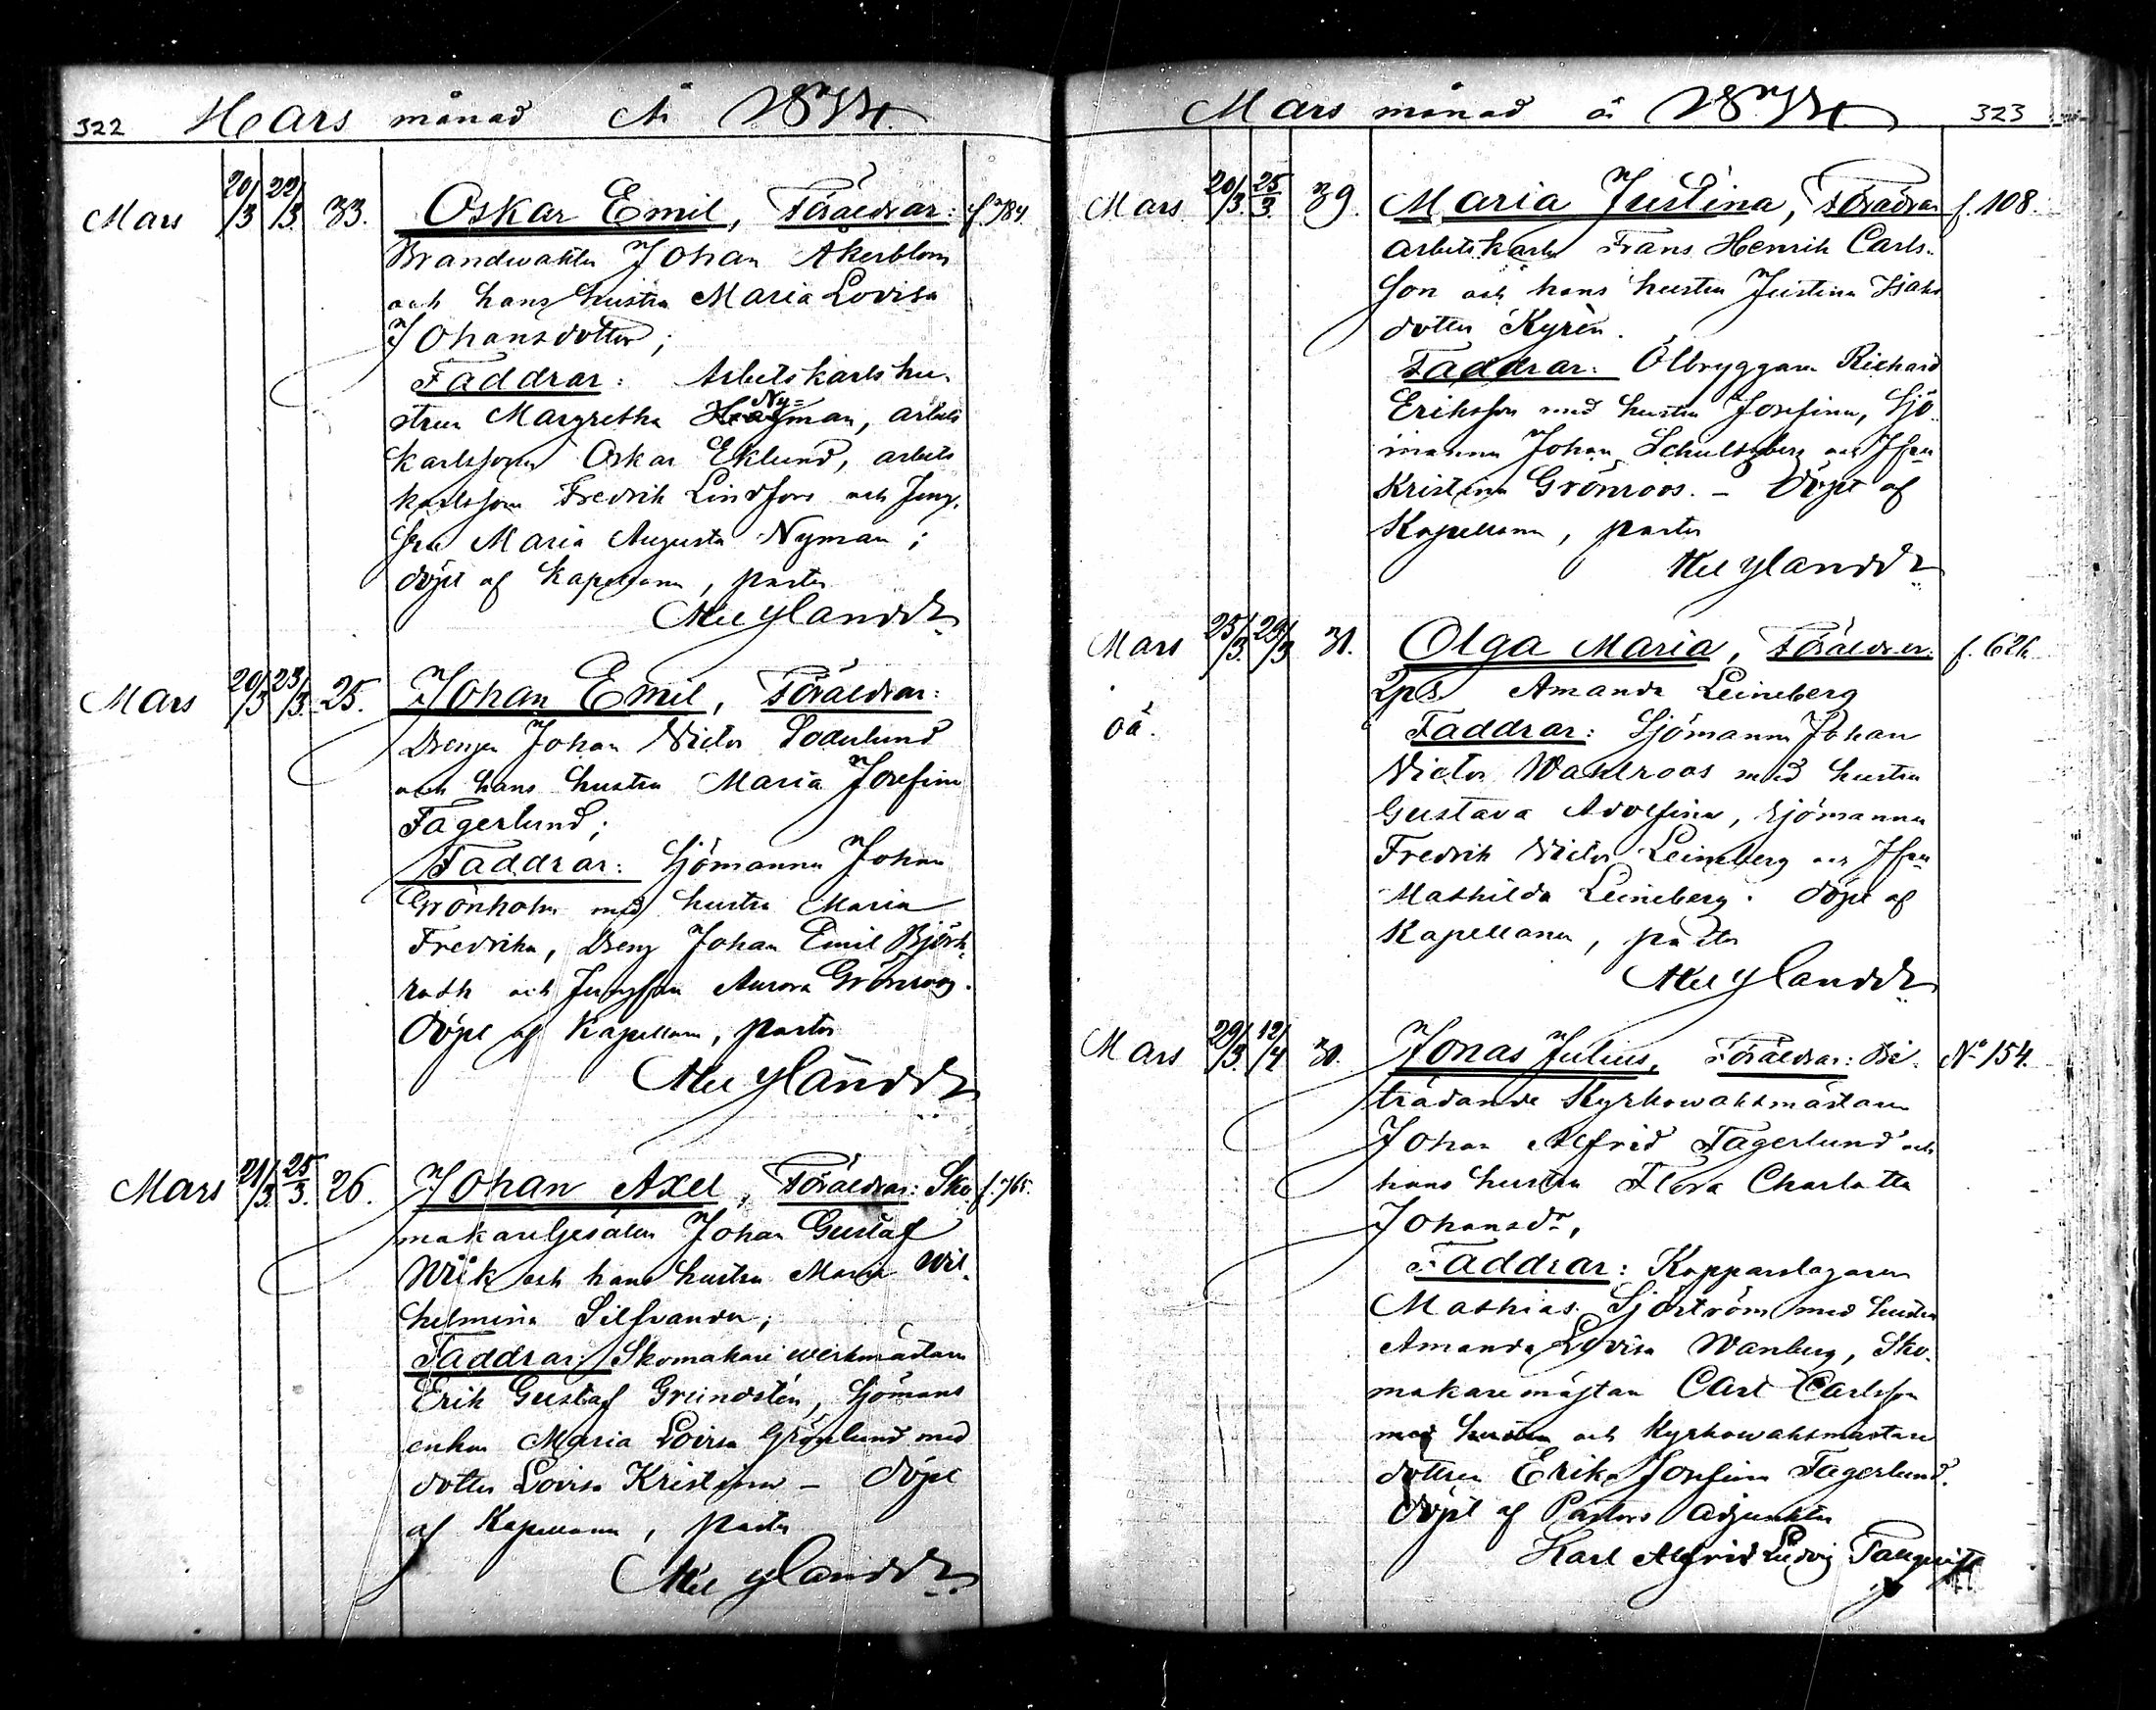 322 Mars månad År 1874.
Mars 20/3 22/3 33. Oskar Emil, Föräldrar: f. 784.
Brandwakten Johan Åkerblom
och hans hustru Maria Lovisa
Johansdotter;
Faddrar: Arbetskarls hu-
strun Margretha Nyman, arbets
karlssonen Oskar Eklund, arbets
karlssonen Fredrik Lindfors och Jung-
frun Maria Augusta Nyman;
döpt af Kapellanen, pastor
Mars 20/3 23/3 25. Johan Emil, Föräldrar:
Drengen Johan Victor Söderlund
och hans hustru Maria Josefina
Fagerlund;
Faddrar: Sjömannen Johan
Grönholm med hustru Maria
Fredrika, Dreng Johan Emil Björk-
och Jungfrun Aurora Grönroos.
Döpt af Kapellanen, pastor
Mars 21/3 25/3 26. Johan Axel, Föräldrar: Sko- f. 765.
makaregesälen Johan Gustaf
Wiik och hans hustru Maria Wil-
helmina Silfvander;
Faddrar: Skomakare werkmästaren
Erik Gustaf Grundstén, Sjömans
enkan Maria Lovisa Grönlund med
dotter Lovisa Kristina – döpt
af Kapellanen, pastor
Mars månad år 1874. 323
Mars 20/3 25/3 39. Maria Justina, Föräldrar f. 108.
Arbetskarlen Frans Henrik Carls-
son och hans hustru Justina Isaks
dotter Kyrén.
Faddrar: Ölbryggaren Richard
Eriksson med hustru Josefina, Sjö-
mannen Johan Schultzberg och Jfrun
Kristina Grönroos. – Döpt af
Kapellanen, pastor
Mars 25/3 29/3 31. Olga Maria, Föräldrar: f. 626
Amanda Leineberg
oä. Faddrar: Sjömannen Johan
Victor Wahlroos med hustru
Gustava Adolfina, Sjömannen
Fredrik Victor Leineberg och Jfrun
Mathilda Leineberg. Döpt af
Kapellanen, pastor
Mars 29/3 12/4 30. Jonas Julius, Föräldrar: Bi- No 154.
trädande Kyrkowaktmästaren
Johan Alfrid Fagerlund och
hans hustru Flora Charlotta
Johansdr,
Faddrar: Kopparslagaren
Mathias Sjöström med hustru
Amanda Lovisa Wanberg, Sko-
makare mästaren Carl Carlsson
med hustru och Kyrkowaktmästare
dottren Erika Josefina Fagerlund.
Döpt af Pastors adjunkten
Karl Alfrid Ludvig